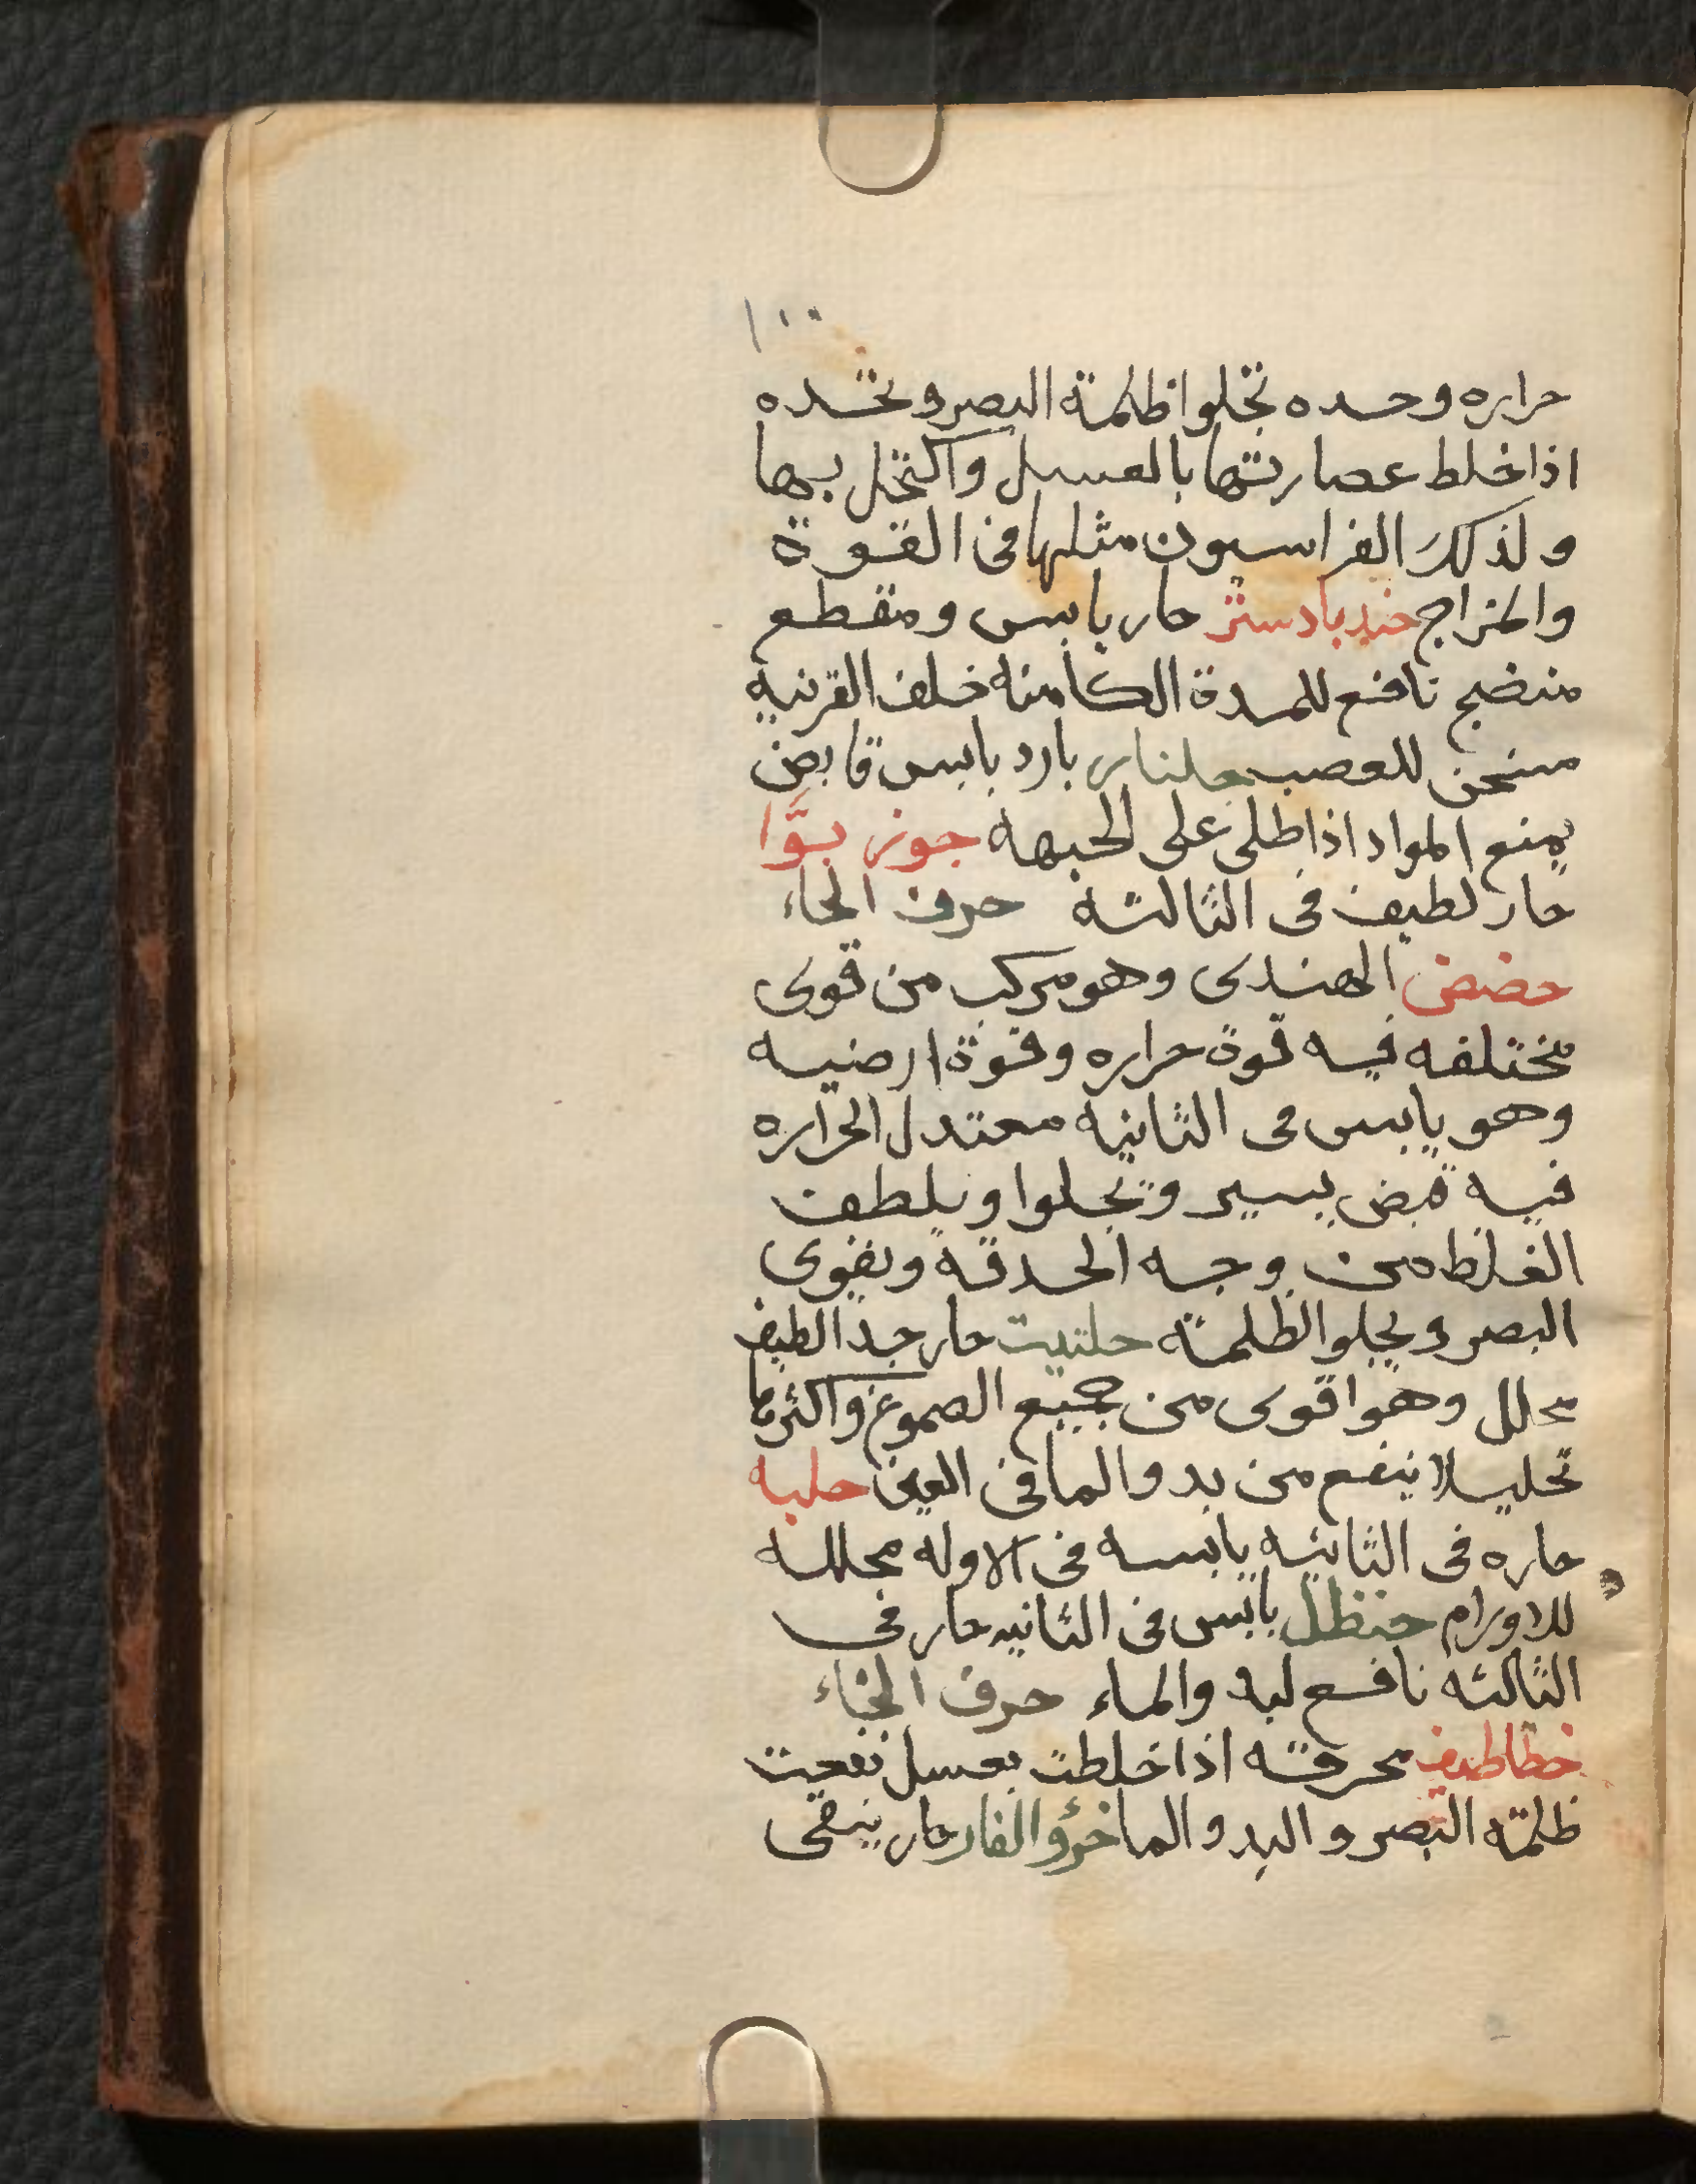 ١٠٠
حراره وحده تجلوا ظلمة البصر وتحده
اذا خلط عصارتها بالعسل واكتحل بها
ولذلك الفراسيون مثلها فى القوة
والمزاج جندبادستر حار يابس ومقطع
منضج نافع للمدة الكامنه خلف القرنيه
مسخن للعصب جلنار بارد يابس قابض
يمنع المواد اذا طلى على الجبهه جوز بوّا
حار لطيف فى الثالثه حرف الحاء
حضض الهندى وهو مركب من قوى
مختلفه فيه قوة حراره وقوة ارضيه
وهو يابس فى الثانيه معتدل الحراره
فيه قبض يسير ويجلوا ويلطف
الغلظ من وجه الحدقه ويقوى
البصر ويجلوا الظلمه حلتيت حار جدا لطيف
محلل وهو اقوى من جميع الصموغ واكثرها
تحليلا ينفع من بدو الما فى العين حلبه
حاره فى الثانيه يابسه فى الاوله محلله
للاورام حنظل يابس فى الثانيه حار فى
الثالثه نافع لبدو الماء حرف الخاء
خطاطيف محرقه اذا خلطت بعسل نفعت
ظلمة البصر والبدو الما خرؤ الفار حار ينقى